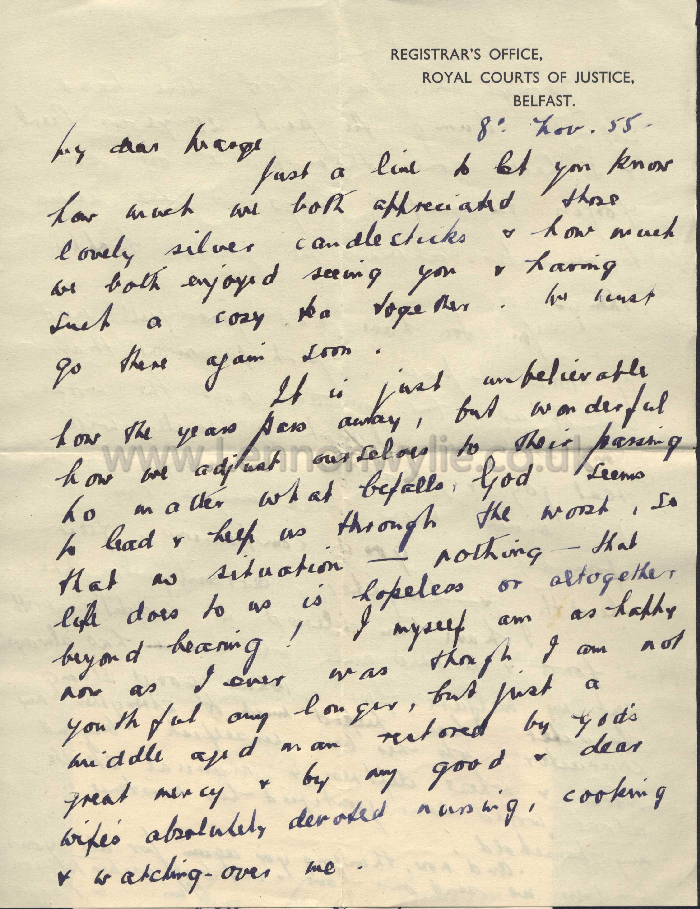 REGISTRAR'S OFFICE,
ROYAL COURTS OF JUSTICE,
BELFAST.
8º Nov. 55.
My dear Marge
Just a line to let you know
how much we both appreciated those
lovely silver candlesticks & how much
we both enjoyed seeing you & having
such a cozy tea together. We must
go there again soon.
It is just unbelievable
how the years pass away, but wonderful
how we adjust ourselves to their passing
www.Lennonwylie.co.uk
no matter what befalls. God seems
to lead & help us through the worst, so
that no situation — nothing — that
life does to us is hopeless or altogether
beyond bearing! I myself am as happy
now as I ever was though I am not
youthful any longer, but just a
middle aged man restored by God's
great mercy & by my good & dear
wife's absolutely devoted nursing, cooking
& watching-over me.